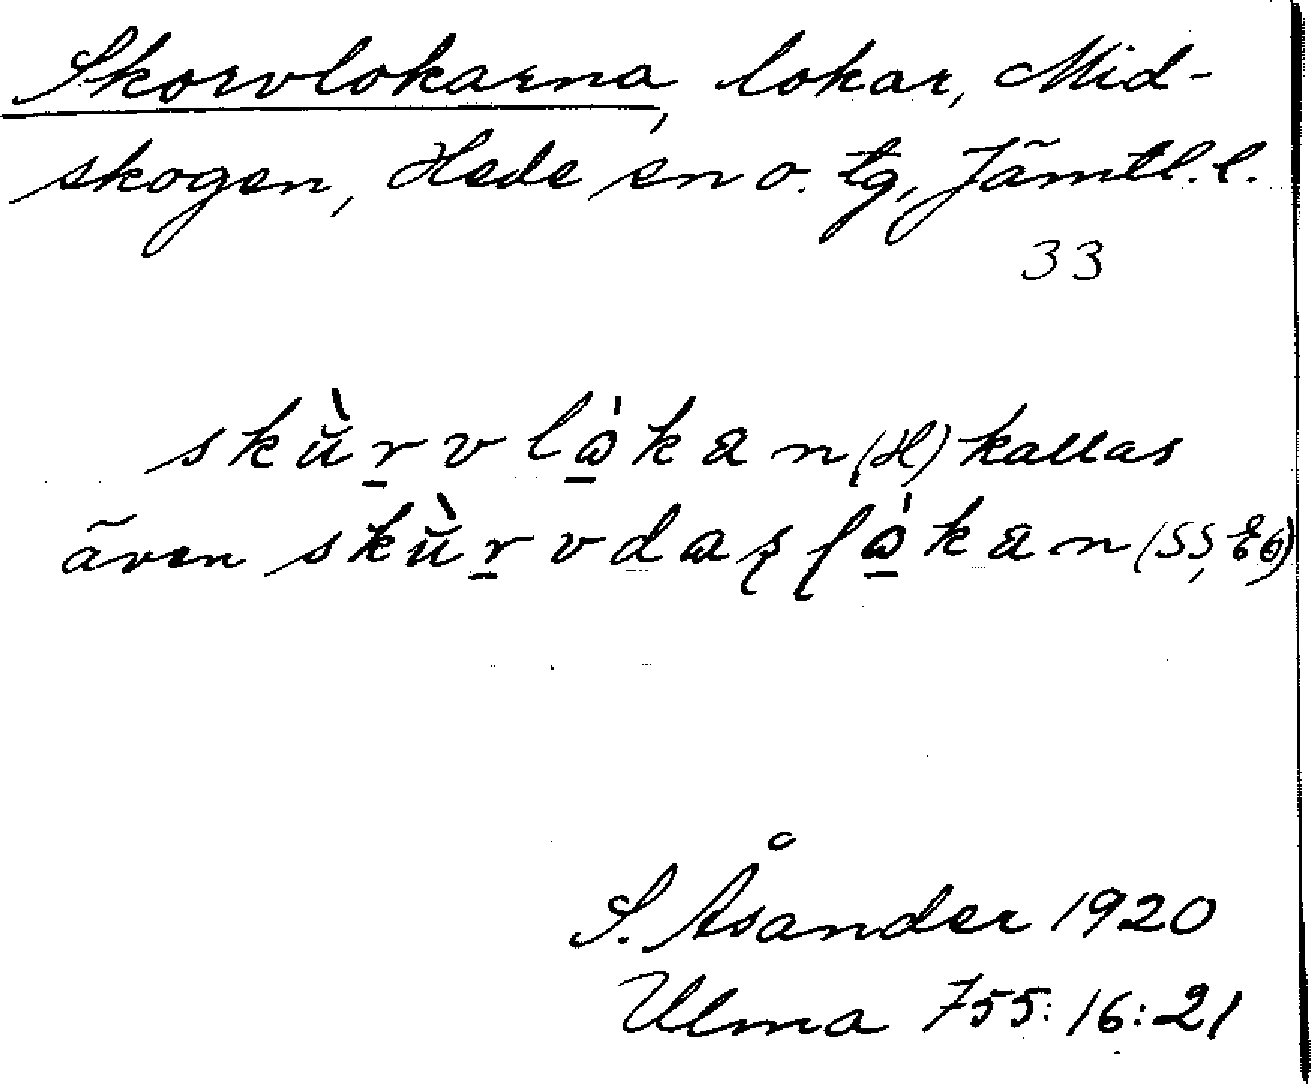 Skorvlokarna, lokar, Mid-
skogen, Hede sn o. tg, Jämtl. l.
33
skŭ̀r̠vlɷ̠̀kan (H) kallas
även skŭ̀r̠vdɷʂɭɷ̠̀kan (SS, Eg)
S. Åsander 1920
Ulma 755:16:21